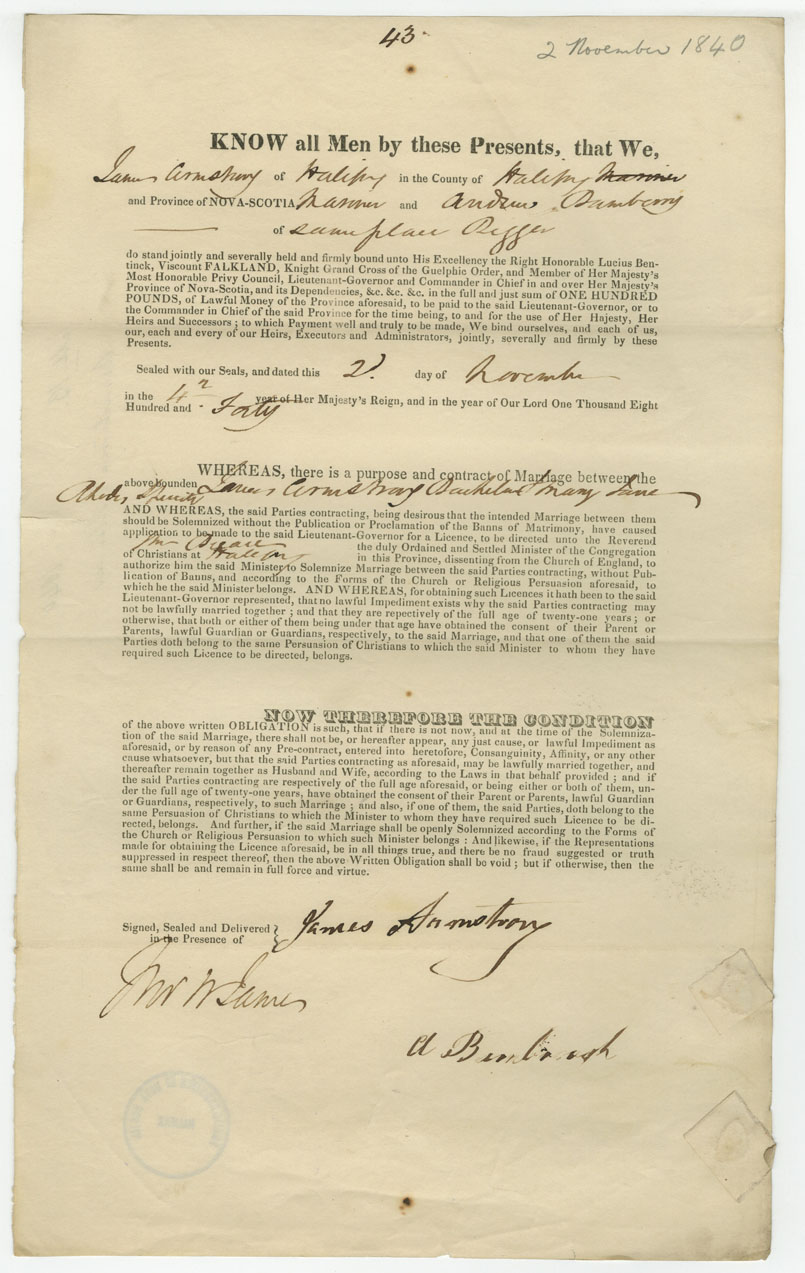 43
2 November 1840
KNOW all Men by these Presents, that We,
James Armstrong of Halifax in the County of Halifax Mariner
and Province of NOVA-SCOTIA, Mariner and Andrew
of same place Rigger
do stand jointly and severally held and firmly bound unto His Excellency the Right Honorable Lucius Ben-
tinck, Viscount FALKLAND, Knight Grand Cross of the Guelphic Order, and Member of Her Majesty's
Most Honorable Privy Council, Lieutenant-Governor and Commander in Chief in and over Her Majesty's
Province of Nova-Scotia, and its Dependencies, &c. &c. &c. in the full and just sum of ONE HUNDRED
POUNDS, of Lawful Money of the Province aforesaid, to be paid to the said Lieutenant-Governor, or to
the Commander in Chief of the said Province for the time being, to and for the use of Her Hajesty, Her
Heirs and Successors; to which Payment well and truly to be made, We bind ourselves, and each of us,
our, each and every of our Heirs, Executors and Administrators, jointly, severally and firmly by these
Presents.
Sealed with our Seals, and dated this 2d. day of November
in the 4 year of Her Majesty's Reign, and in the year of Our Lord One Thousand Eight
Hundred and Forty
WHEREAS, there is a purpose and contract of Marriage between the
abovebounden James Armstrong Bachelor & Mary Jane
Spinster
AND WHEREAS, the said Parties contracting, being desirous that the intended Marriage between them
should be Solemnized without the Publication or Proclamation of the Banns of Matrimony, have caused
application to be made to said Lieutenant-Governor for a Licence, to be directed unto the Reverend
the duly Ordained and Settled Minister of the Congregation
of Christians at Halifax in this Province, dissenting from the Church of England, to
authorize him the said Minister to Solemnize Marriage between the said Parties contracting, without Pub-
lication of Banns, and according to the Forms of the Church or Religious Persuasion aforesaid, to
which he the said Minister belongs. AND WHEREAS, for obtaining such Licences it hath been to the said
Lieutenant-Governor represented, that no lawful Impediment exists why the said Parties contracting may
not be lawfully married together; and that they are repectively of the full age of twenty-one years; or
otherwise, that both or either of them being under that age have obtained the consent of their Parent or
Parents, lawful Guardian or Guardians, respectively, to the said Marriage, and that one of them the said
Parties doth belong to the same Persuasion of Christians to which the said Minister to whom they have
required such Licence to be directed, belongs.
NOW THEREFORE THE CONDITION
of the above written OBLIGATION is such, that if there is not now, and at the time of the Solemniza-
tion of the said Marriage, there shall not be, or hereafter appear, any just cause, or lawful Impediment as
aforesaid, or by reason of any Pre-contract, entered into heretofore, Consanguinity, Affinity, or any other
cause whatsoever, but that the said Parties contracting as aforesaid, may be lawfully married together, and
thereafter remain together as Husband and Wife, according to the Laws in that behalf provided; and if
the said Parties contracting are respectively of the full age aforesaid, or being either or both of them, un-
der the full age of twenty-one years, have obtained the consent of their Parent or Parents, lawful Guardian
or Guardians, respectively, to such Marriage; and also, if one of them, the said Parties, doth belong to the
same Persuasion of Christians to which the Minister to whom they have required such Licence to be di-
rected, belongs. And further, if the said Marriage shall be openly Solemnized according to the Forms of
the Church or Religious Persuasion to which such Minister belongs: And likewise, if the Representations
made for obtaining the Licence aforesaid, be in all things true, and there be no fraud suggested or truth
suppressed in respect thereof, then the above Written Obligation shall be void; but if otherwise, then the
same shall be and remain in full force and virtue.
Signed, Sealed and Delivered } James Armstrong
in the Presence of
W James
A